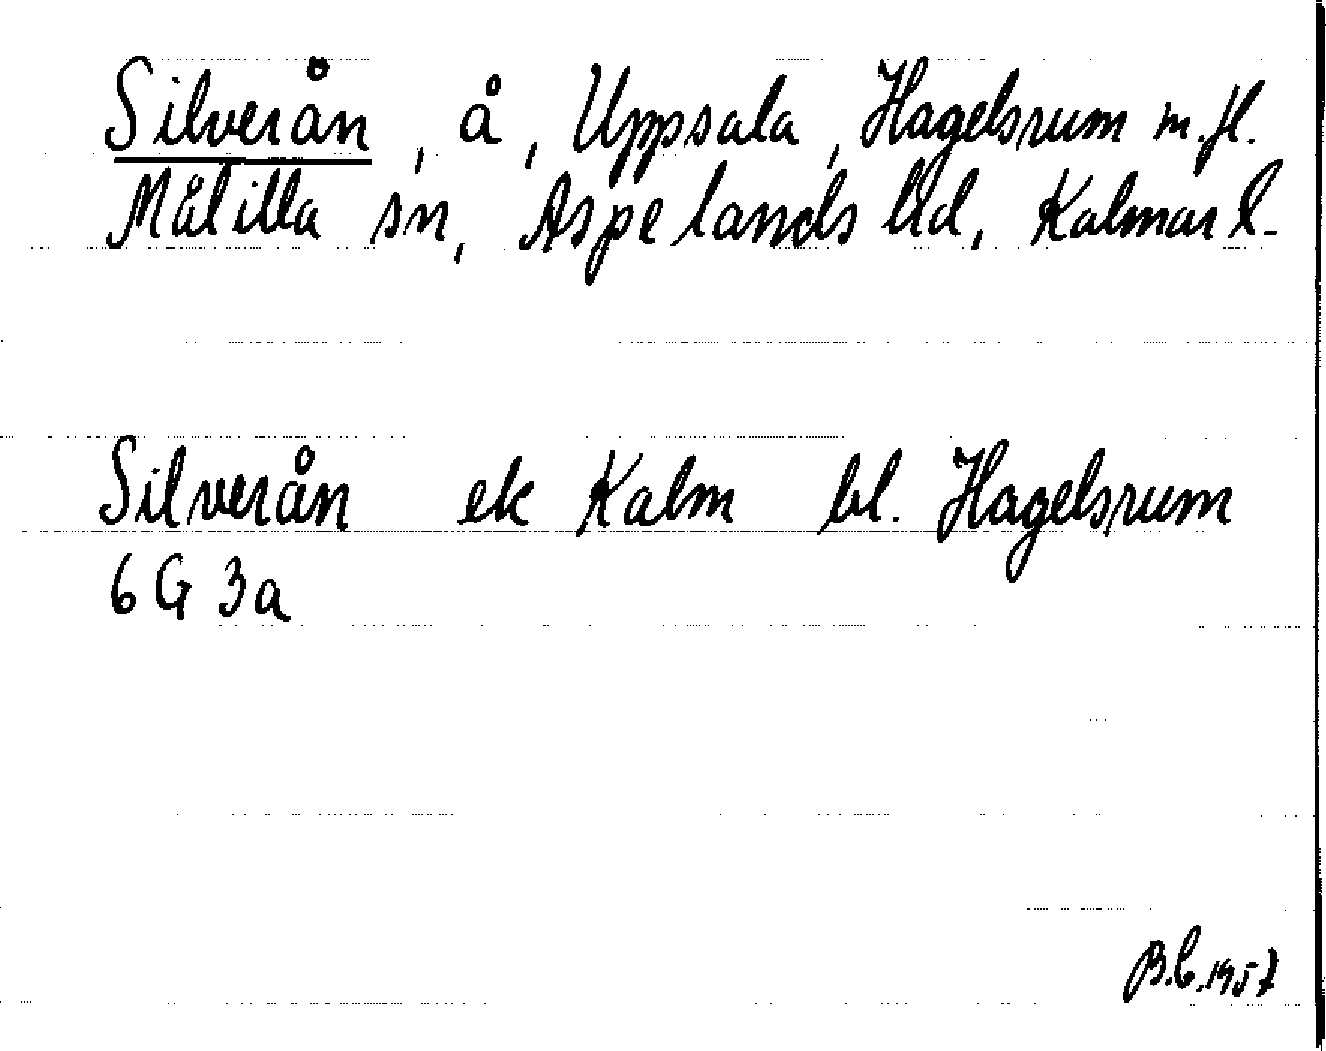 Silverån, å, Uppsala, Hagelsrum m.fl.
Målilla sn, Aspelands hd, Kalmar l.
Silverån ek Kalm bl. Hagelsrum
6G 3a
1957